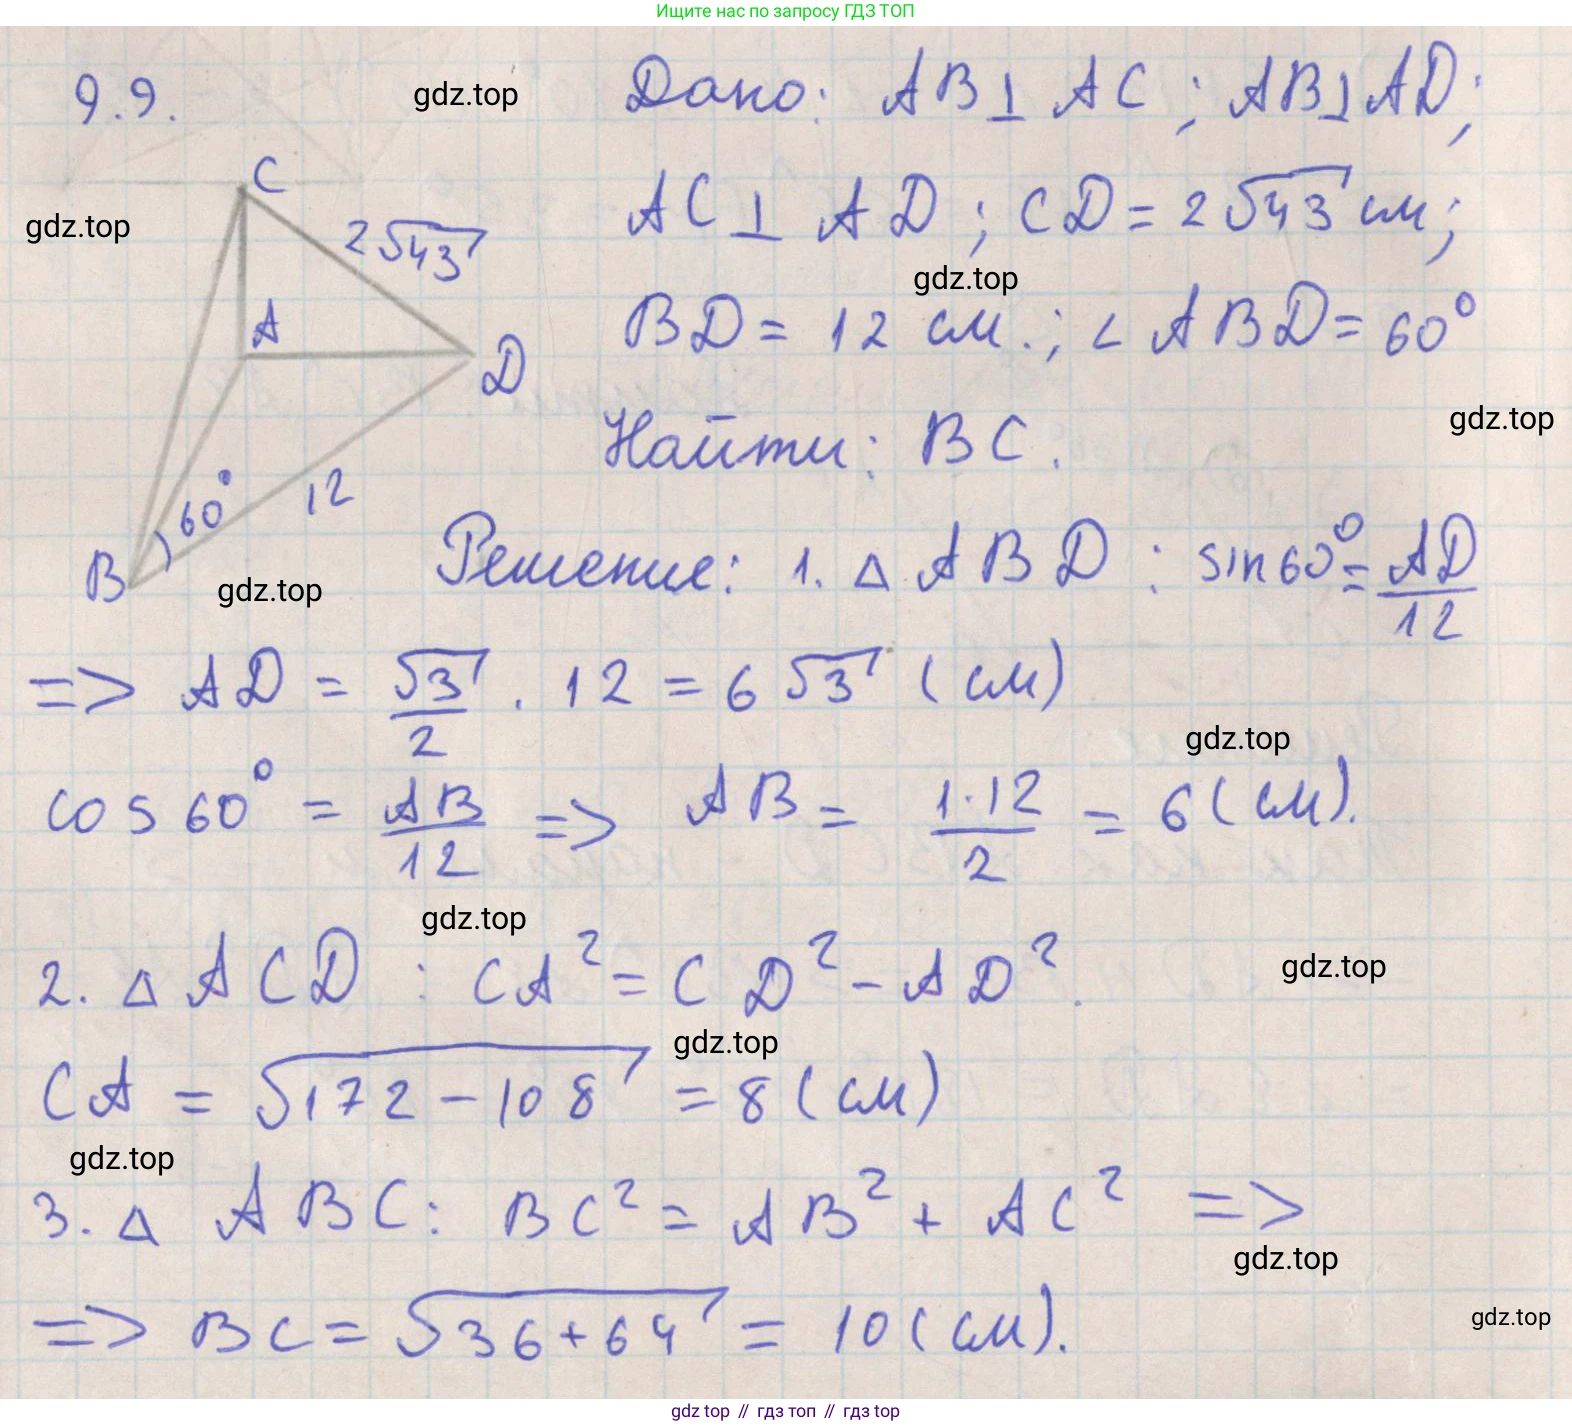 Ищите нас по запросу ГДЗ ТОП
9.9.
gdz.top
Дано: AB ⊥ AC ; AB ⊥ AD;
C
2√43
gdz.top
AC ⊥ AD ; CD = 2√43 см;
gdz.top
A
D
BD = 12 см.; ∠ABD = 60°
gdz.top
Найти: BC.
60°
12
B
gdz.top
Решение: 1. △ ABD : sin60° = AD/12
=> AD = √3/2 · 12 = 6√3 (см)
gdz.top
cos 60° = AB/12 => AB = 1·12/2 = 6 (см).
gdz.top
2. △ ACD : CA² = CD² - AD².
gdz.top
gdz.top
CA = √172 - 108 = 8 (см)
gdz.top
3. △ ABC: BC² = AB² + AC² =>
gdz.top
=> BC = √36+64 = 10 (см).
gdz.top
gdz top // гдз топ // гдз top